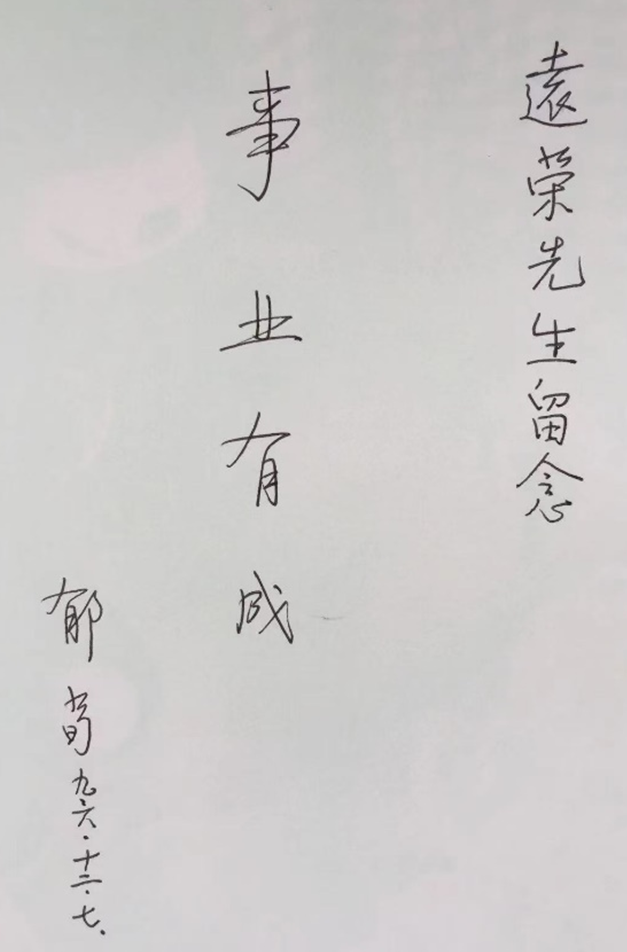 遠荣先生留念
事业有成
郁筍九六·十二·七.